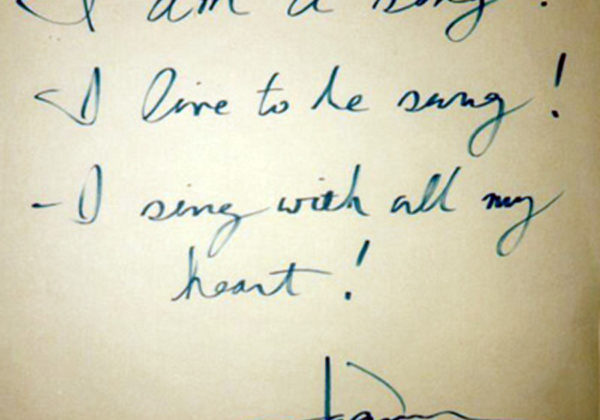 I am a song!
-I live to be sung!
-I sing with all my
heart!